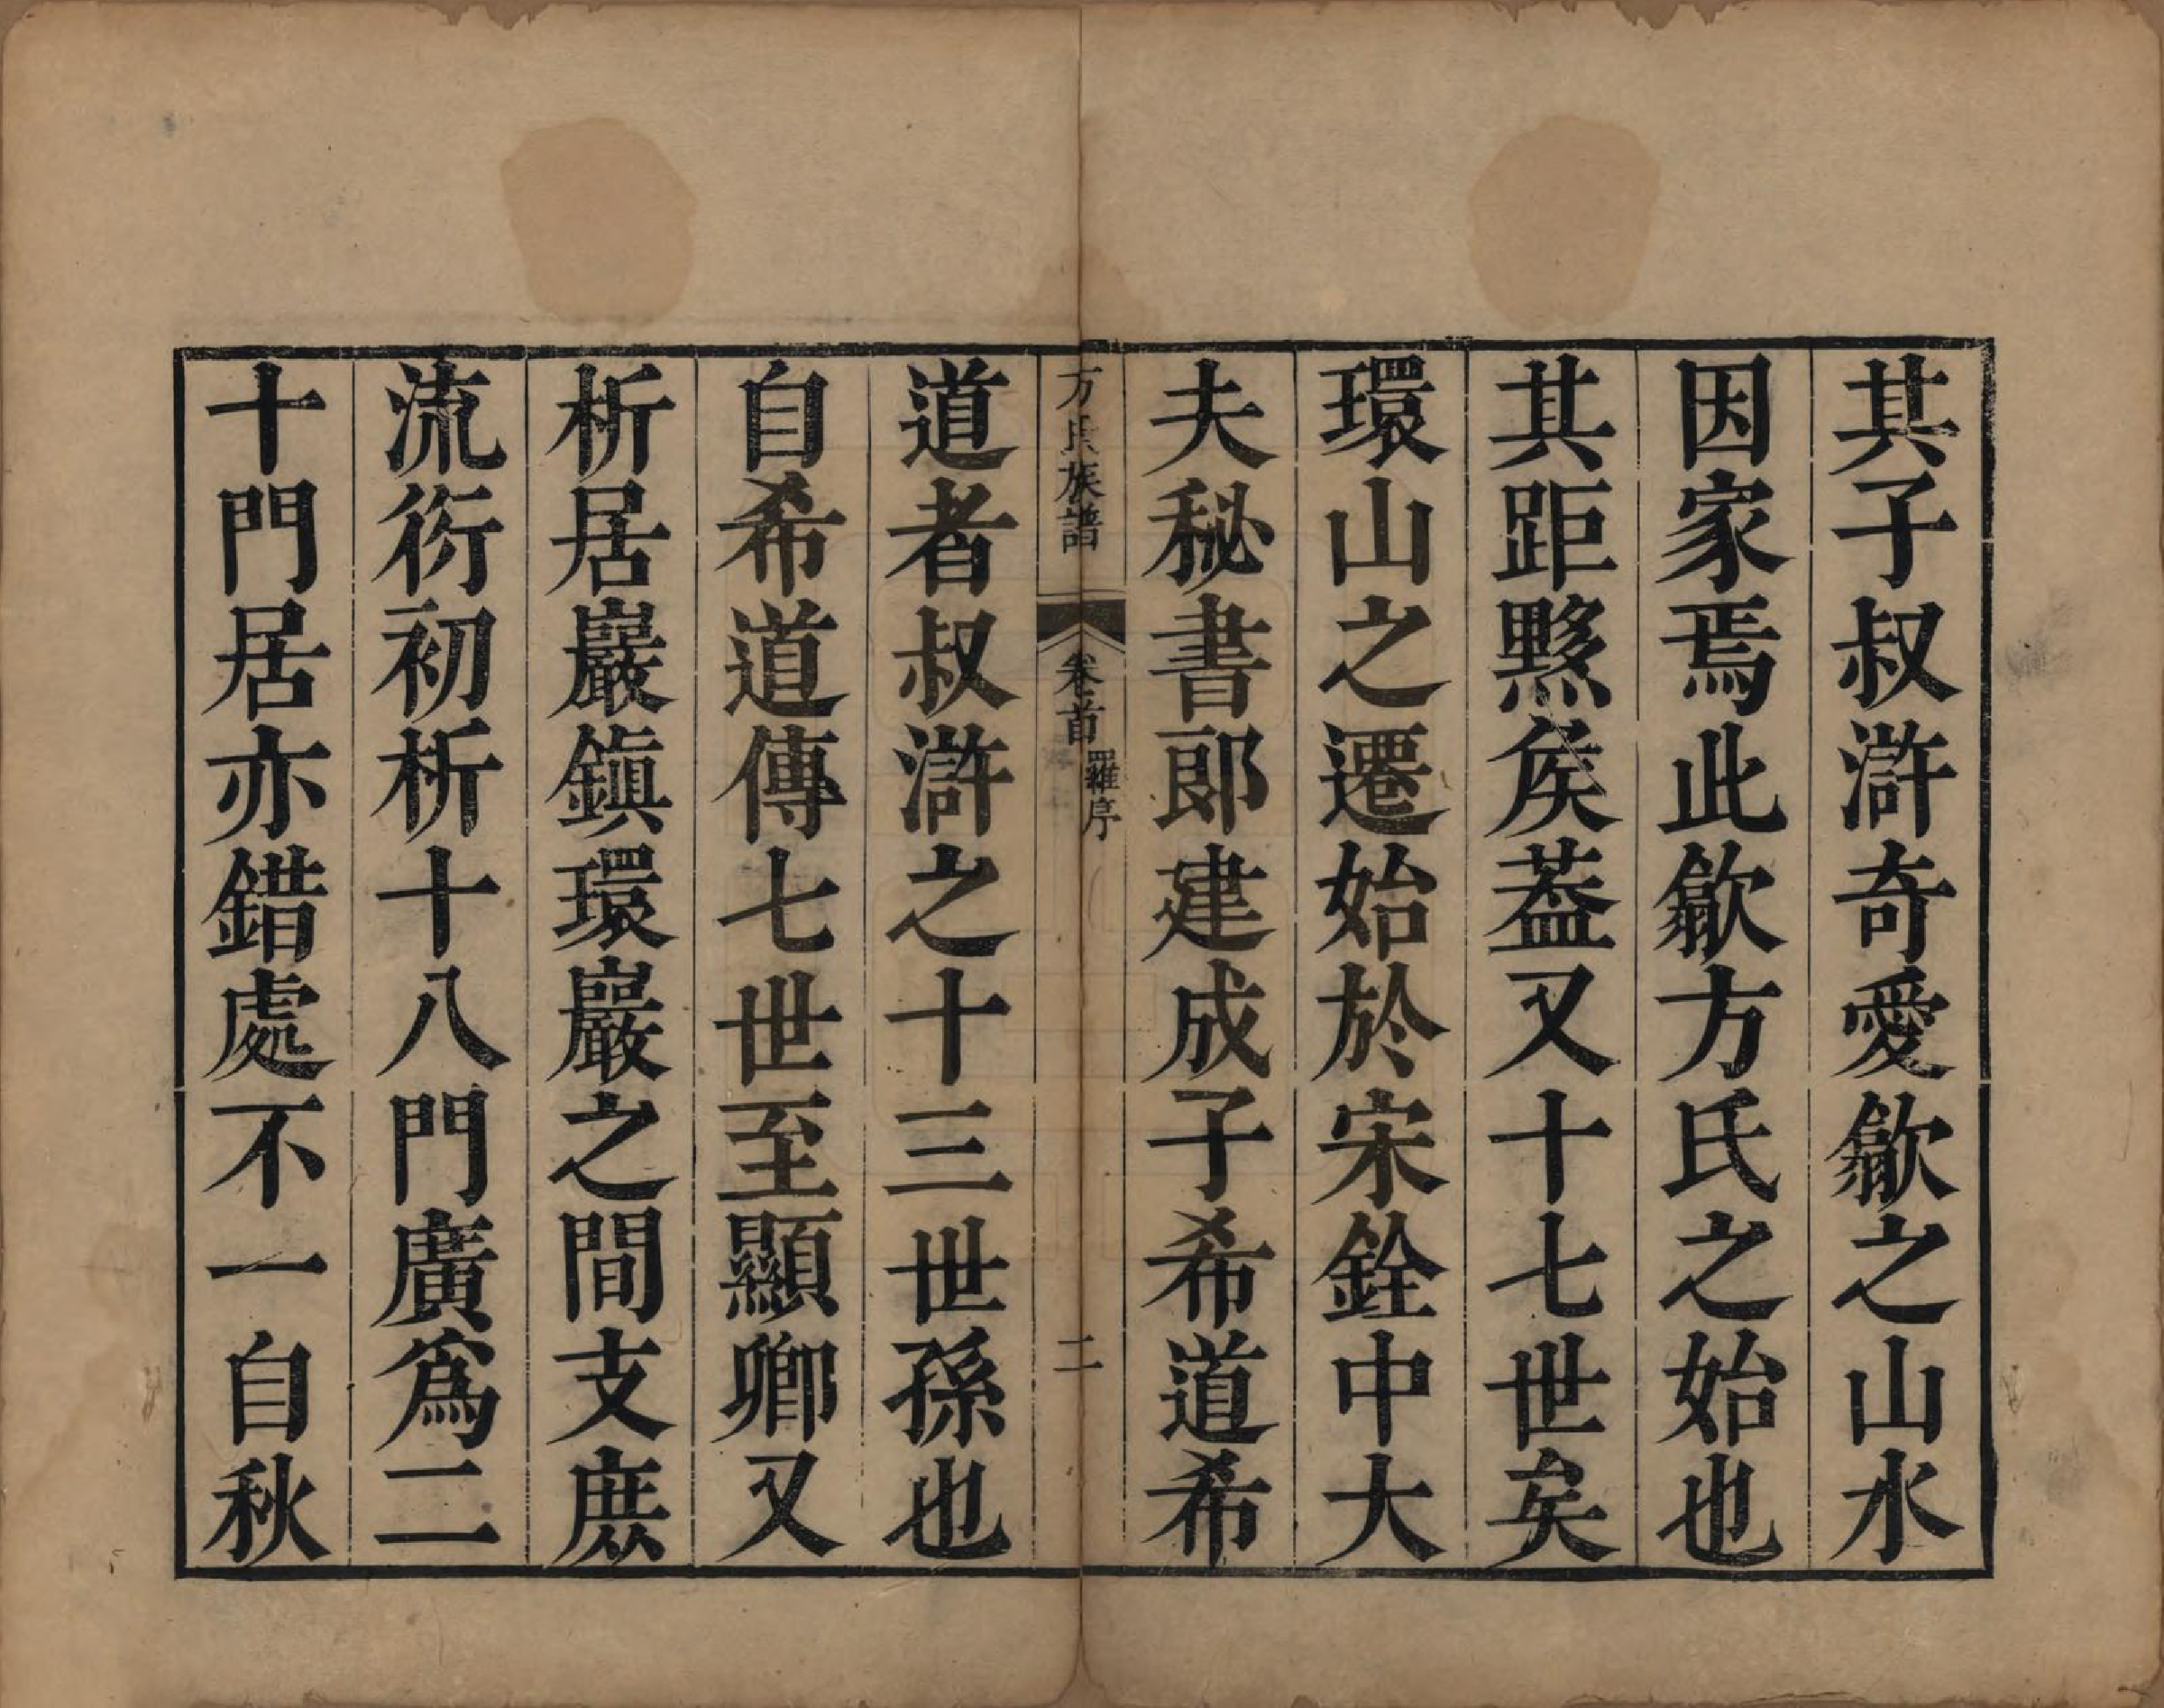 其子叔滸奇愛歙之山水
因家焉此歙方氏之始也
其距黟矦葢又十七世矣
環山之遷始於宋銓中大
夫秘書郎建成子希道希
方氏族譜 卷首 羅序 二
道者叔滸之十三世孫也
自希道傳七世至顯卿又
析居巖鎭環巖之間支庶
流衍初析十八門廣爲二
十門居亦錯處不一自秋